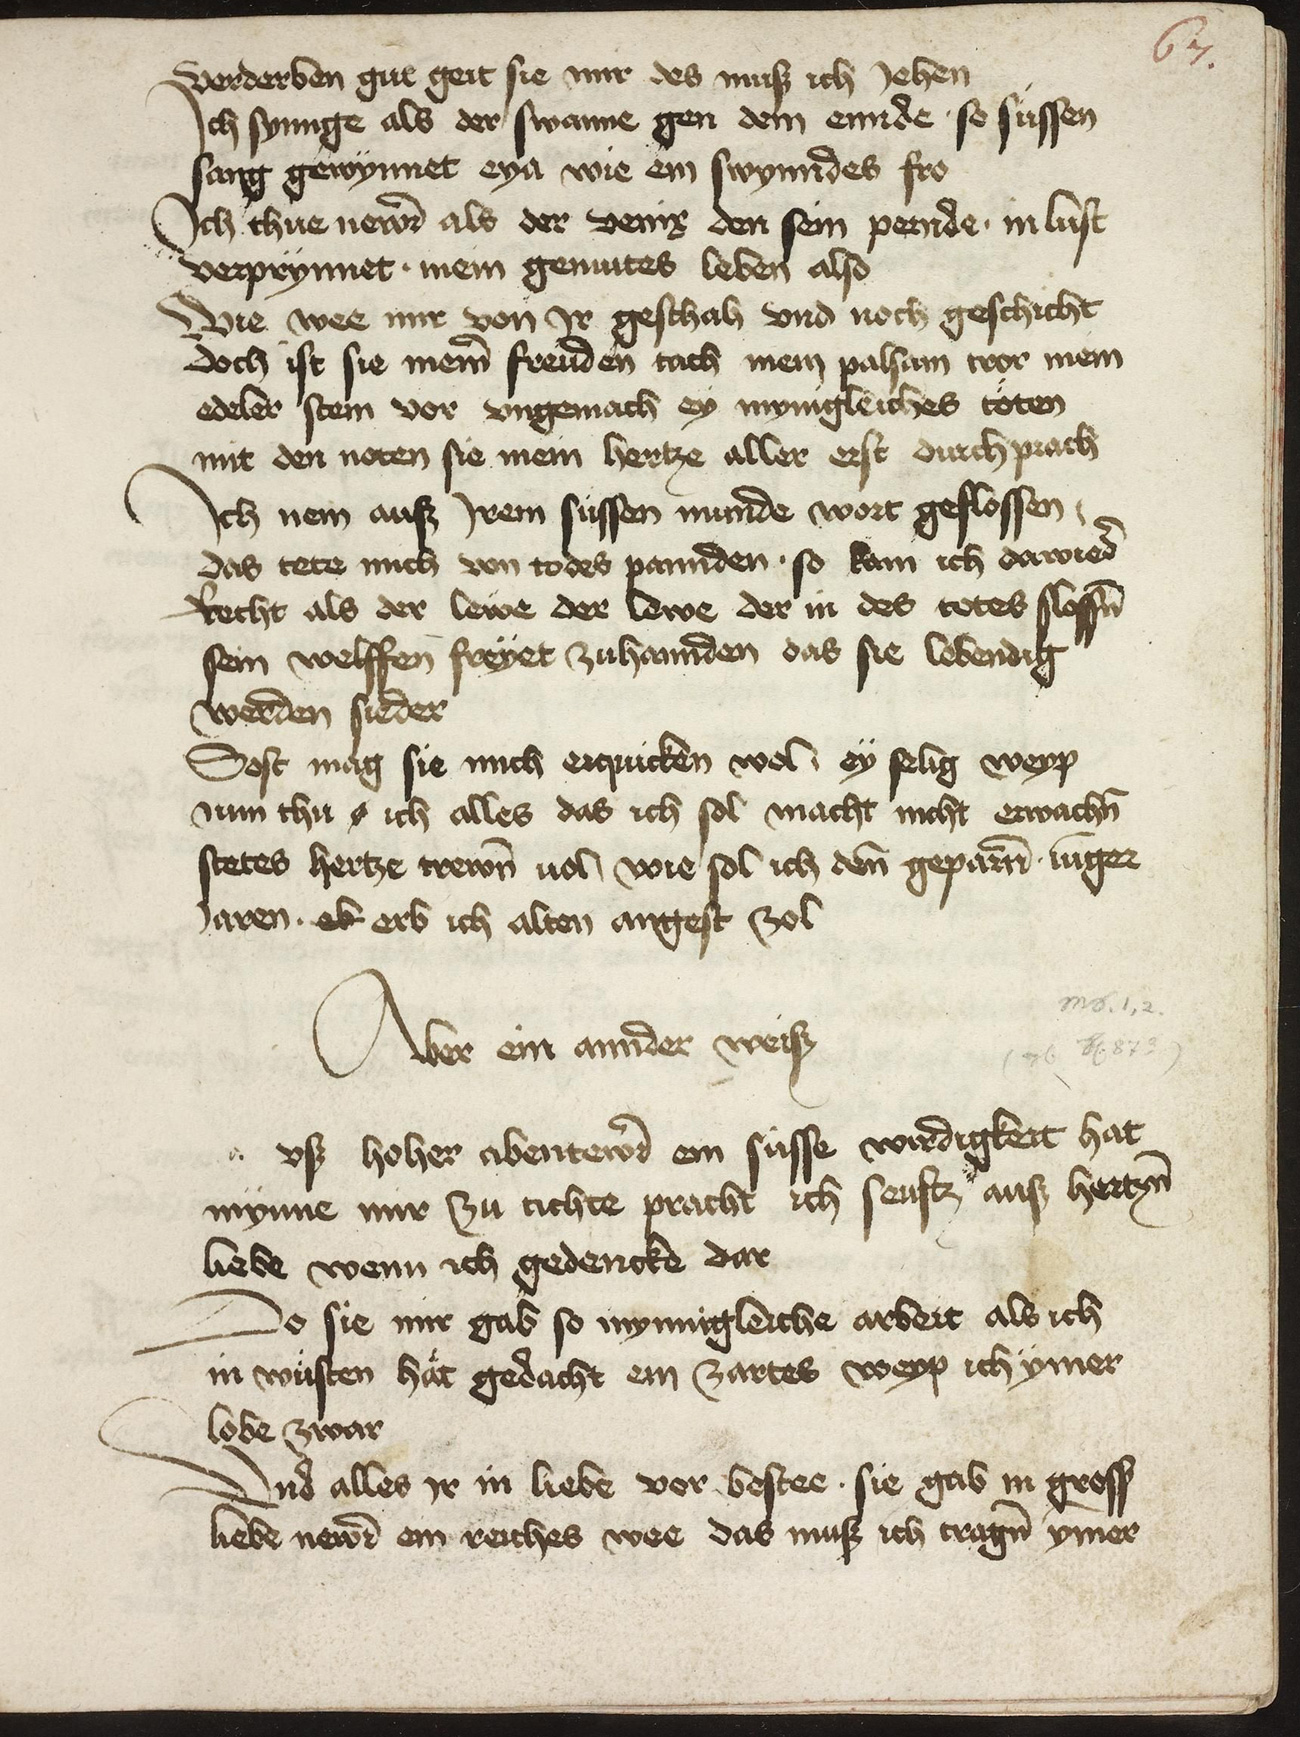 67.
Verderben gut geit sie mir des muß ich Jehen
Ich synnge als der swanne gen dem ennde · so süssen
sang gewÿnnet eya wie ein swynndes fro
Ich thue newr̄ als der venix den sein pennde · in lust
verprÿnnet · mein gemutes leben also
Wie wee mir von Ir geschah vnd noch geschicht
doch ist sie mein̄ freuden tach mein palsam tror mein
edeler stein vor vngemach eÿ mynigleiches töten
mit den noten sie mein hertze aller erst durch prach
Ich nem auß Jrem süssen munde wort geflossen
das tete mich von todes pannden · so kam ich darwied̄
Recht als der lewe der lewe der in des totes slossn̄
sein welffen freÿet zuhannden das sie lebendig
werden sieder
Sost mag sie mich erquicken wol eÿ selig weyp
num thu ich alles das ich sol macht nicht erwachn̄
stetes hertze trewn̄ vol wie sol ich den̄ geparn̄ · iūger
Jaren · eb erb ich alten angest zol
Aber ein annder weiß
ms. 1, 2.
a vß hoher abentewr̄ ein süsse wirdigkeit hat
mÿnne mir zu tichte pracht ich seuftz auß hertzn̄
liebe wenn ich gedencke dar
Do sie mir gab so mynnigleiche arbeit als ich
in wüsten hät gedacht ein zartes weyp ich ÿmer
lobe zwar
Vnd̄ alles Ir in liebe vor bestee · sie gab in gross
liebe newr̄ ein reiches wee das muß ich tragn̄ ÿmer